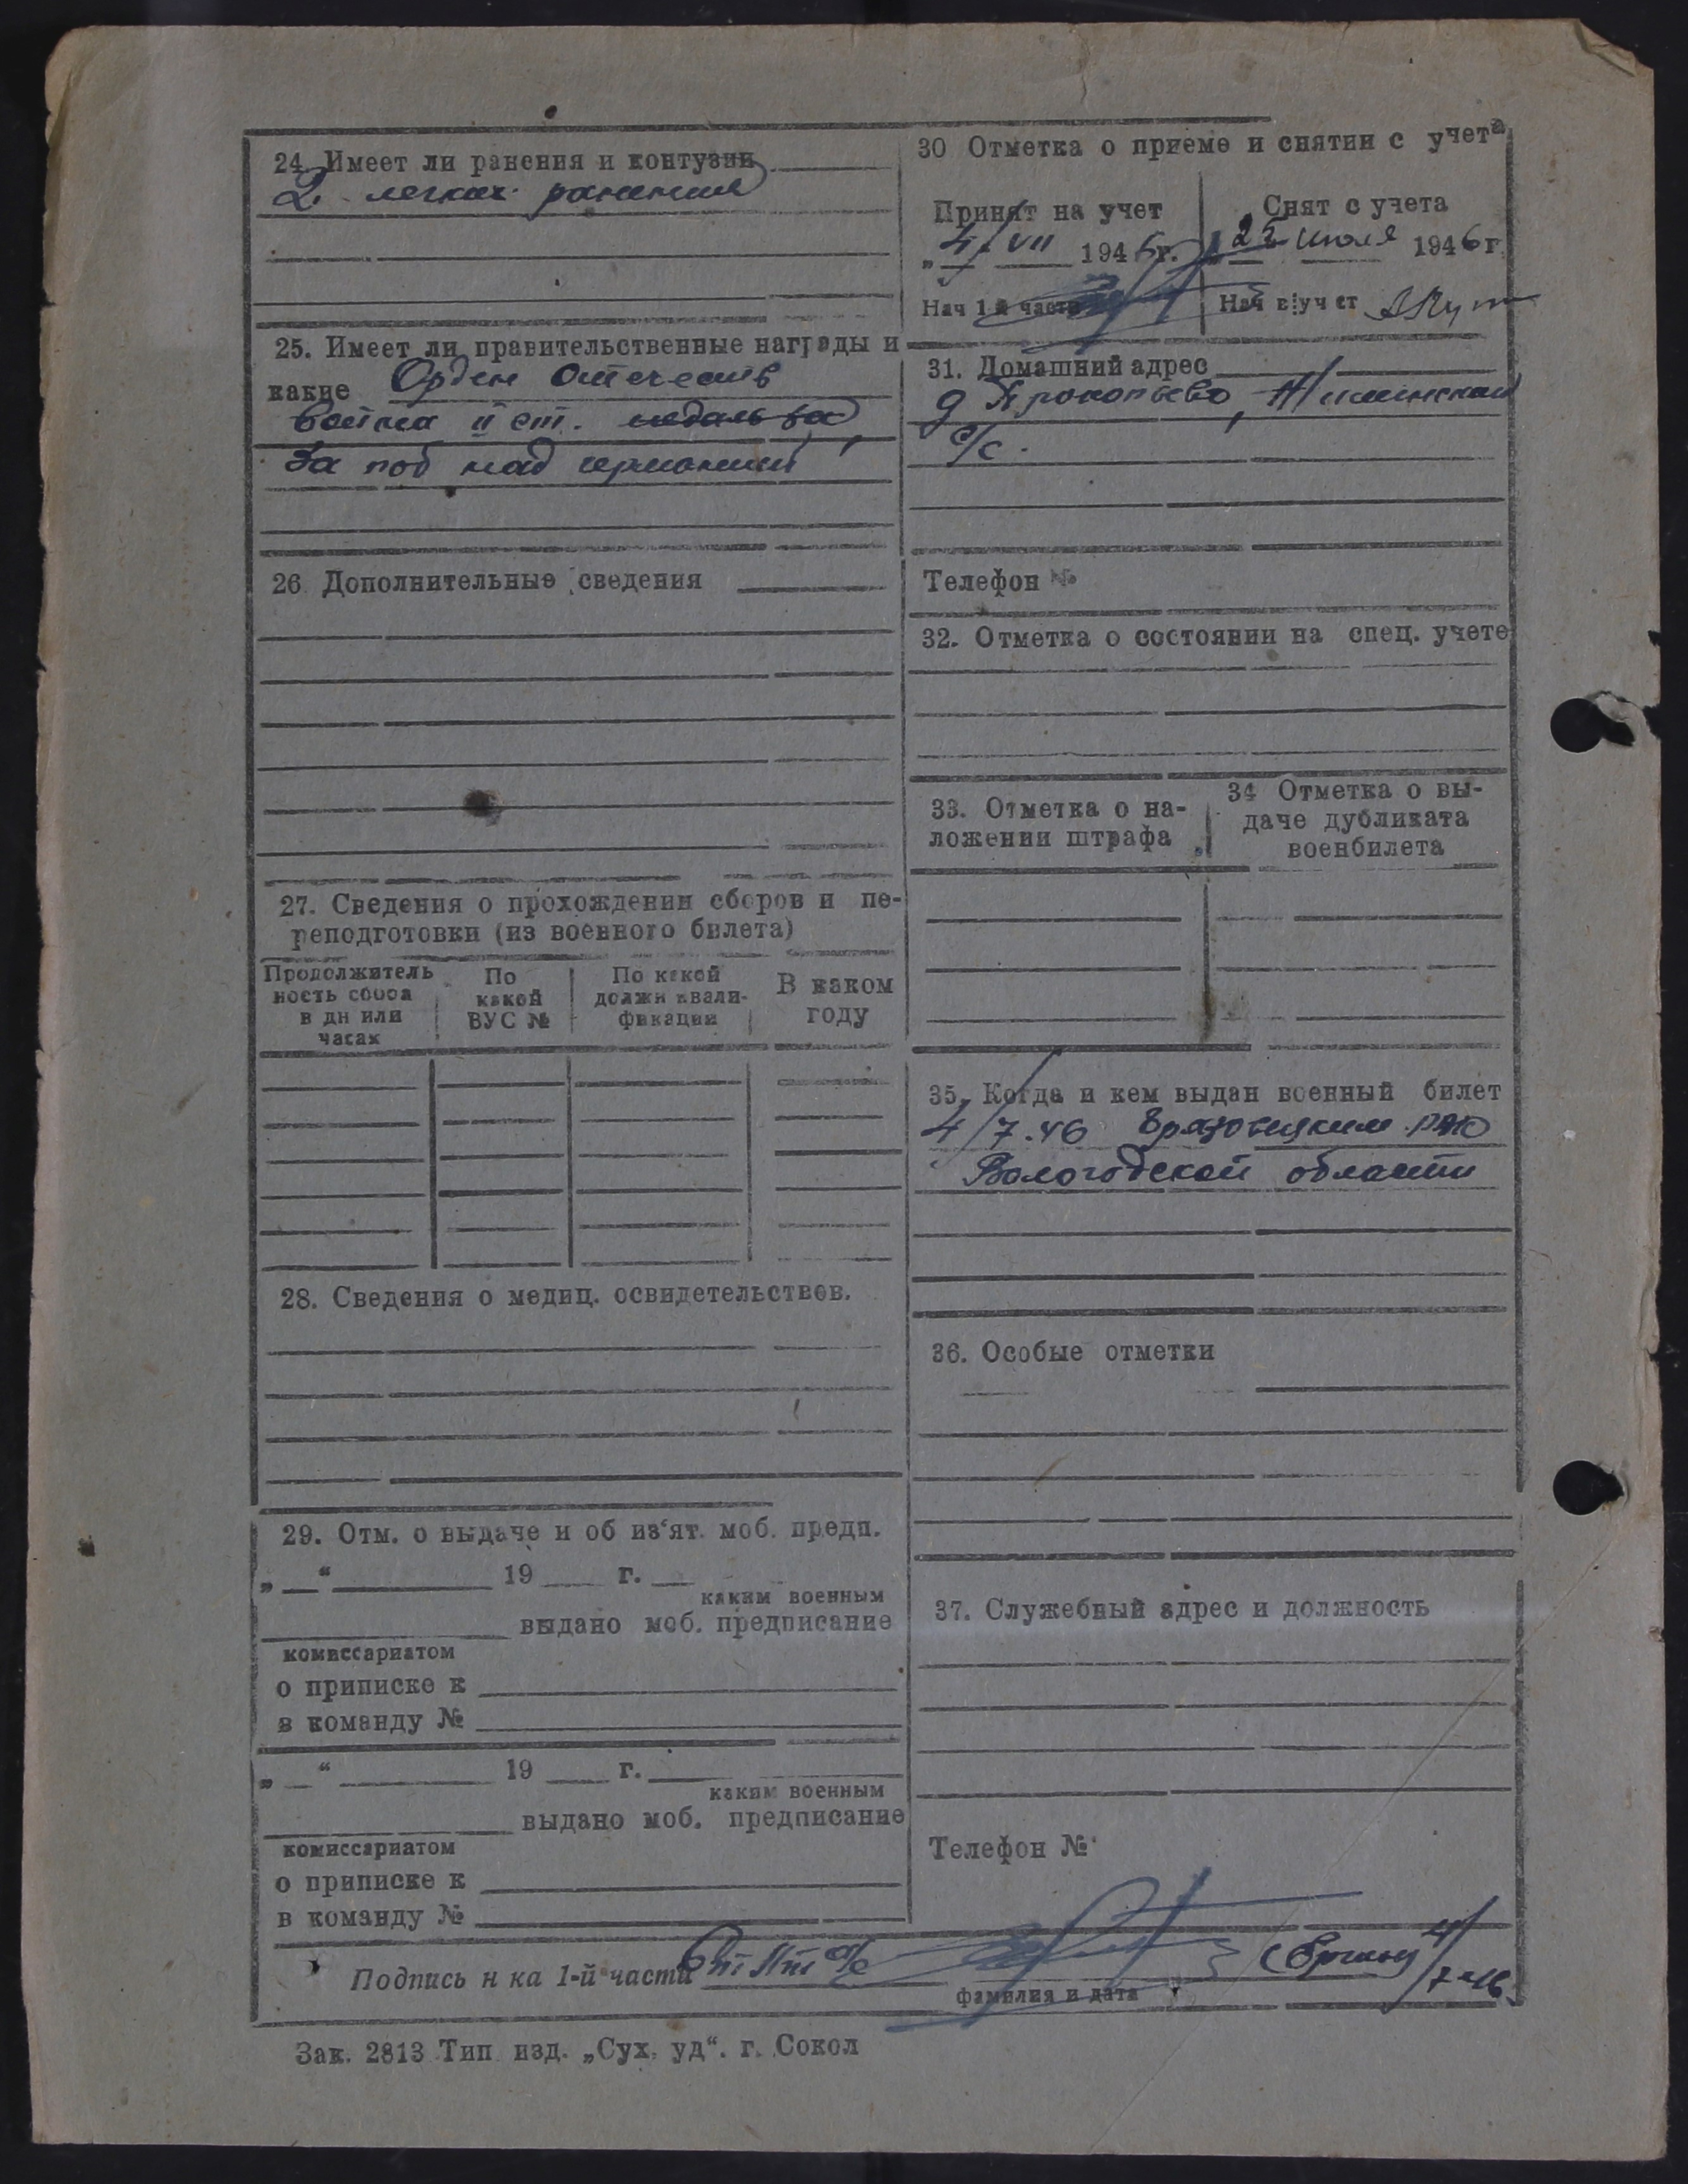 24. Имеет ли ранения и контузии
2 легких ранения
25. Имеет ли правительственные награды и
какие Орден Отечеств
войны II ст. медаль за,
за поб над германий
26 Дополнительные сведения
27. Сведения о прохождении сборов и пе-
реподготовки (из военного билета)
Продолжитель
ность сбора
в дн или
часах
По
какой
ВУС №
По какой
должн квали-
фикации
В каком
году
28. Сведения о медиц. освидетельствов.
29. Отм. о выдаче и об из‘ят. моб. предп.
„ “ 19 г.
каким военным
выдано моб. предписание
комиссариатом
о приписке к
в команду №
„ “ 19 г.
каким военным
выдано моб. предписание
комиссариатом
о приписке к
в команду №
30 Отметка о приеме и снятии с учета
Принят на учет
„4/VII 1946г.
Нач 1-й части
Снят с учета
22 июля 1946г.
Нач в/уч ст
31. Домашний адрес
д Прокопьево,
с/с.
Телефон №
32. Отметка о состоянии на спец. учете
33. Отметка о на-
ложении штрафа
34 Отметка о вы-
даче дубликата
военбилета
35. Когда и кем выдан военный билет
4/7.46 Грязовецким РВК
Вологодской области
36. Особые отметки
37. Служебный адрес и должность
Телефон №
Подпись н ка 1-й части
4/7-46.
фамилия и дата
Зак. 2813 Тип изд. „Сух. уд“. г. Сокол